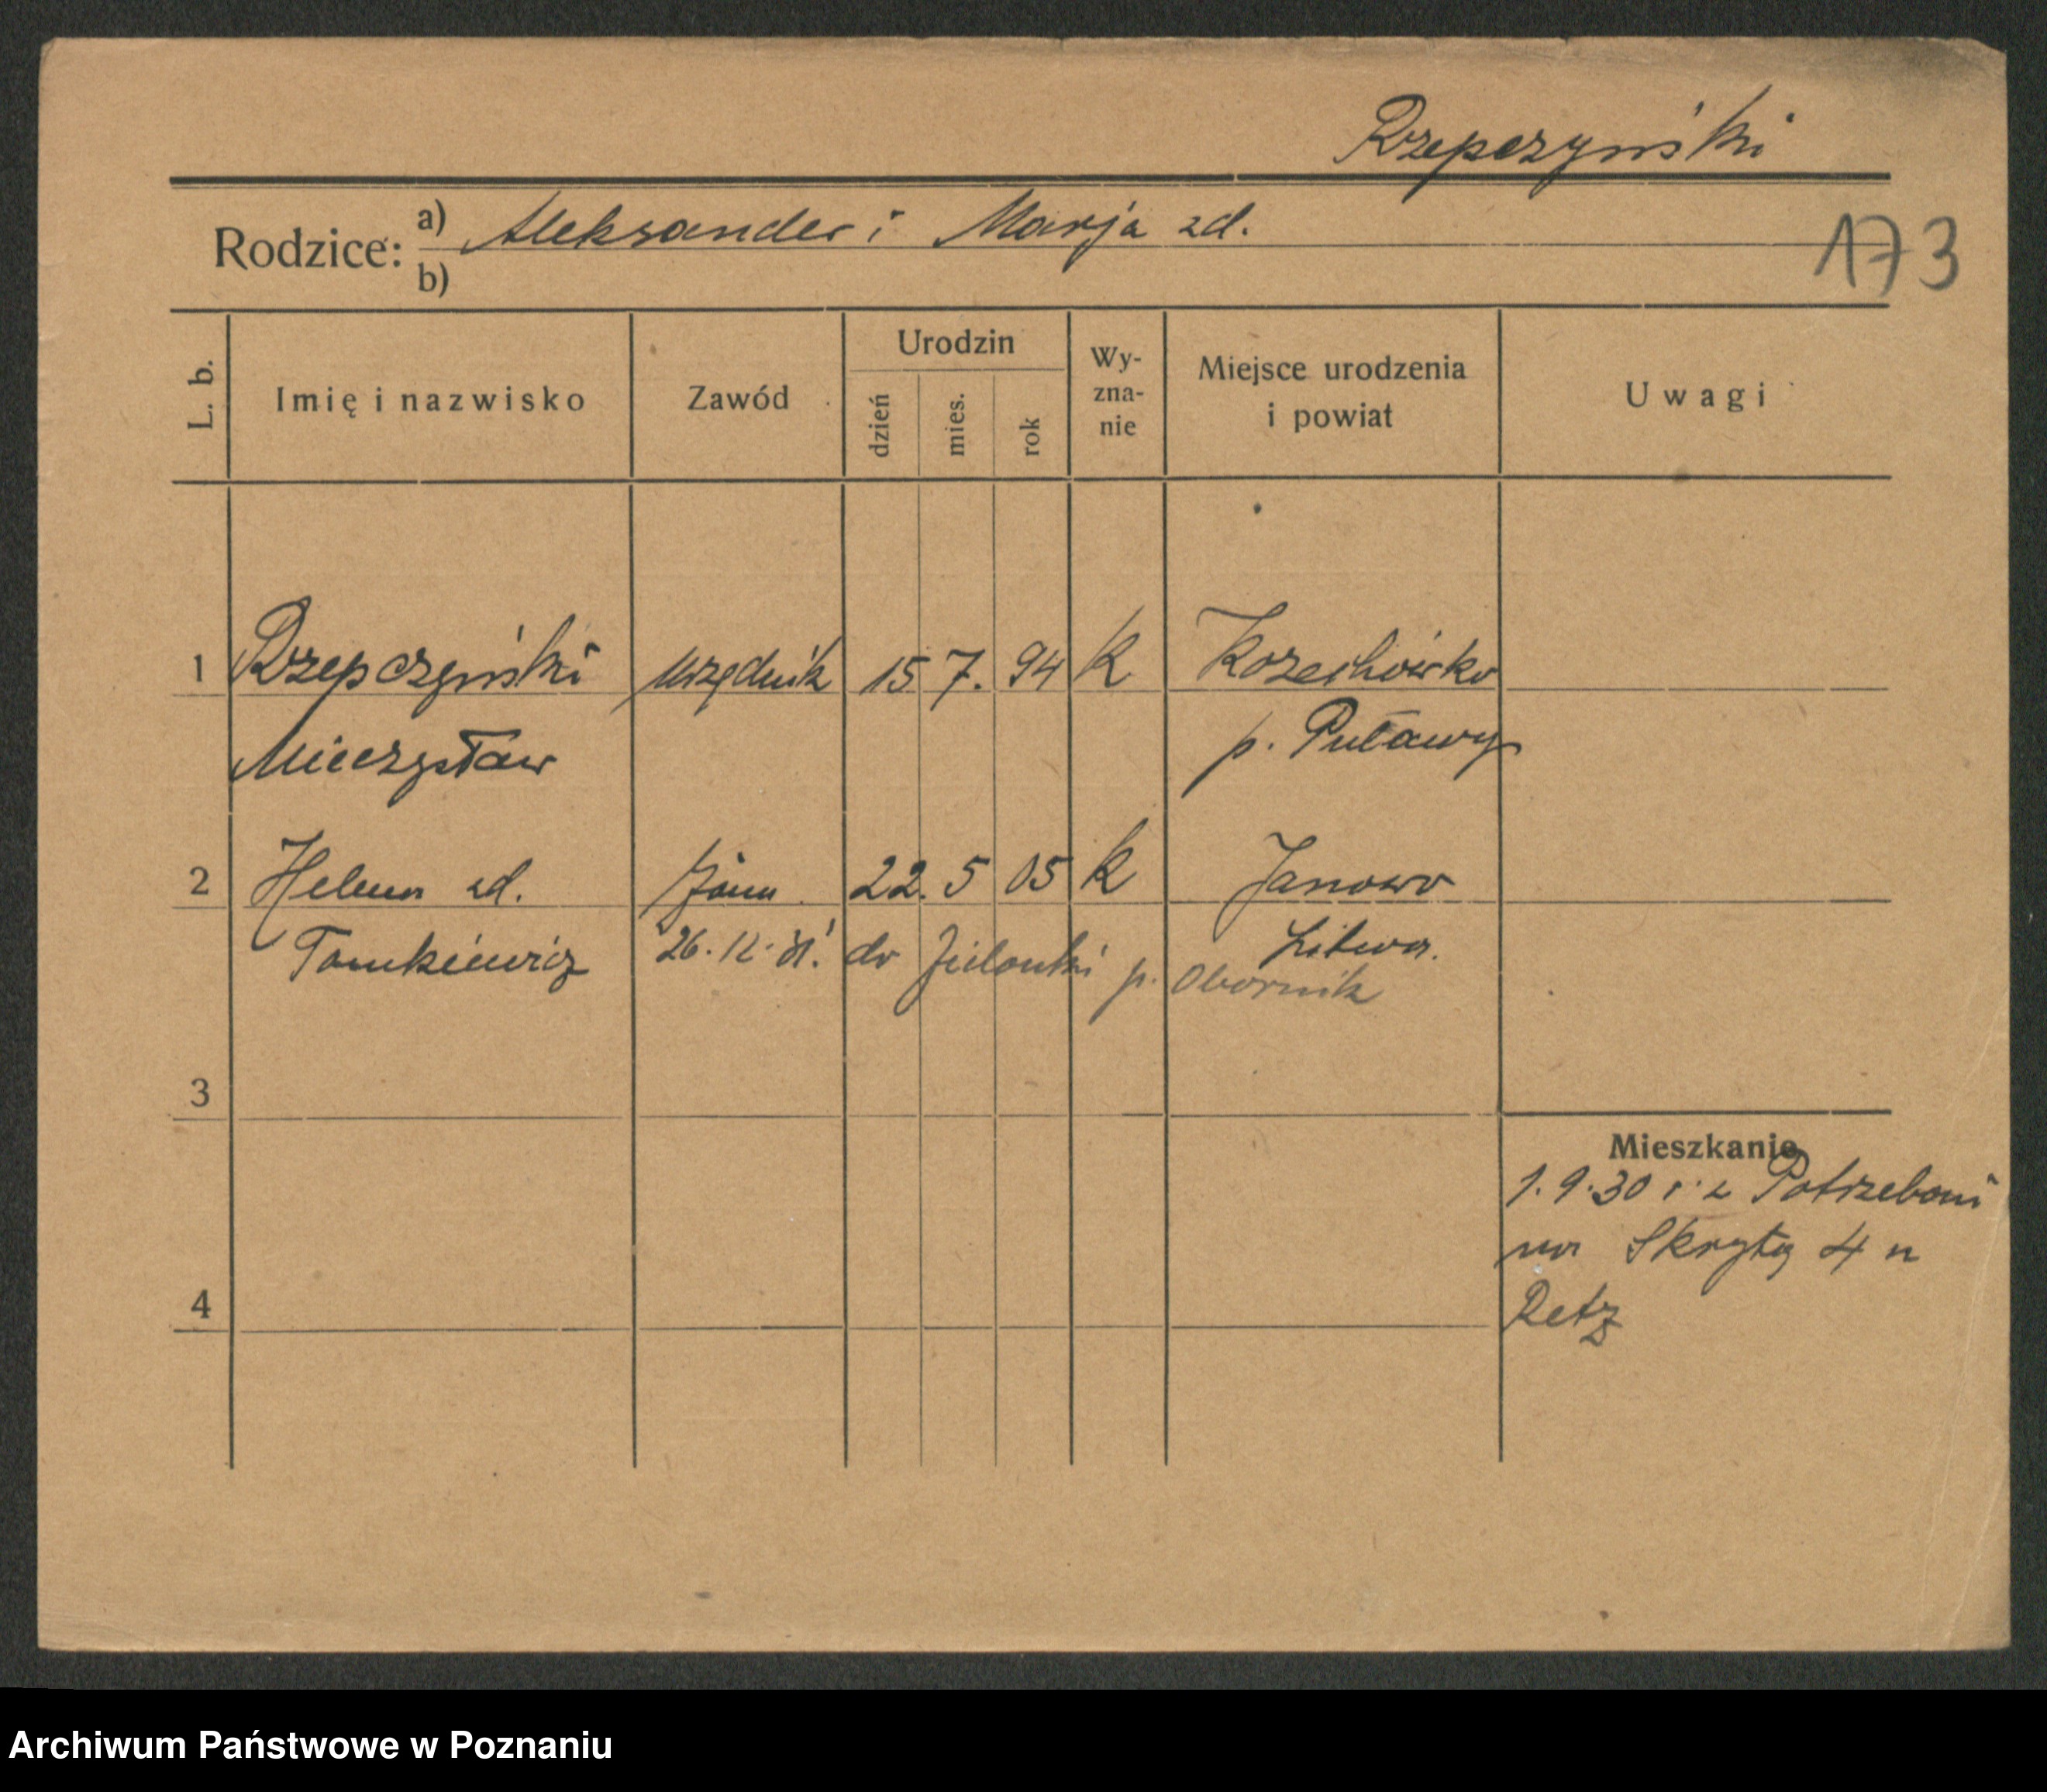 Rzepczyński
Rodzice: a) Aleksander i Marja zd.
b)
173
L. b. Imię i nazwisko Zawód Urodzin dzień mies. rok Wy-zna-nie Miejsce urodzenia i powiat Uwagi
1 Rzepczyński urzędnik 15 7. 94 K Korzechówko
Mieczysław p. Puławy
2 Helena zd. żona 22. 5 05 K Janowo
Tomkiewicz 26. 12. 31. do Zielonki p. Obornik Litwa.
3
Mieszkanie
1. 9. 30 r. z Potrzebowi
na Skrytą 4 u
4 Retz
Archiwum Państwowe w Poznaniu